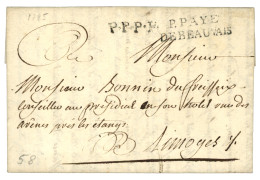 1785
P.P.P.P. P.PAYÉ
DE BEAUVAIS
A
Monsieur
Monsieur Bonnin du fraisseix
Conseiller au présidial en son hotel rue des
arênes près les étangs
Limoges
58